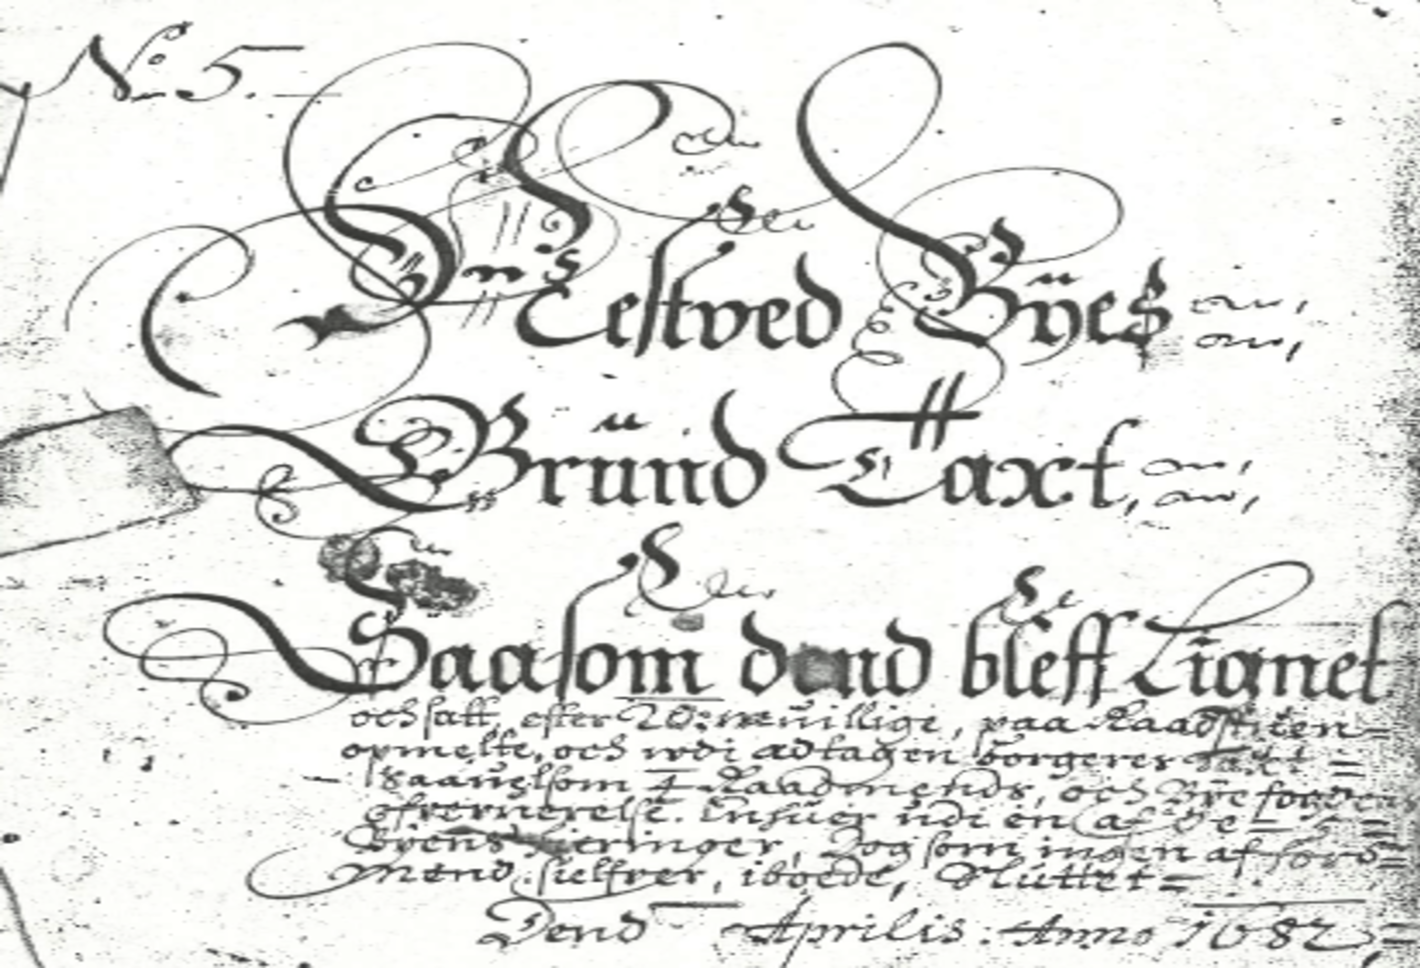 No. 5.
Nestved Bÿes
Gründ Taxt,
Saasom dend bleff Lignet
och satt, efter 20: uvillige, paa Raadstüen
opmelte, och udi adtagen borgerer
Saavelsom 4 Raadmends, och Bÿe fogdens
ofververelse. Enhver üdi en af de
Byens, Dog som ingen af
Mend sielfver, iboede, Sluttet
Dend Aprilis. Anno 1682